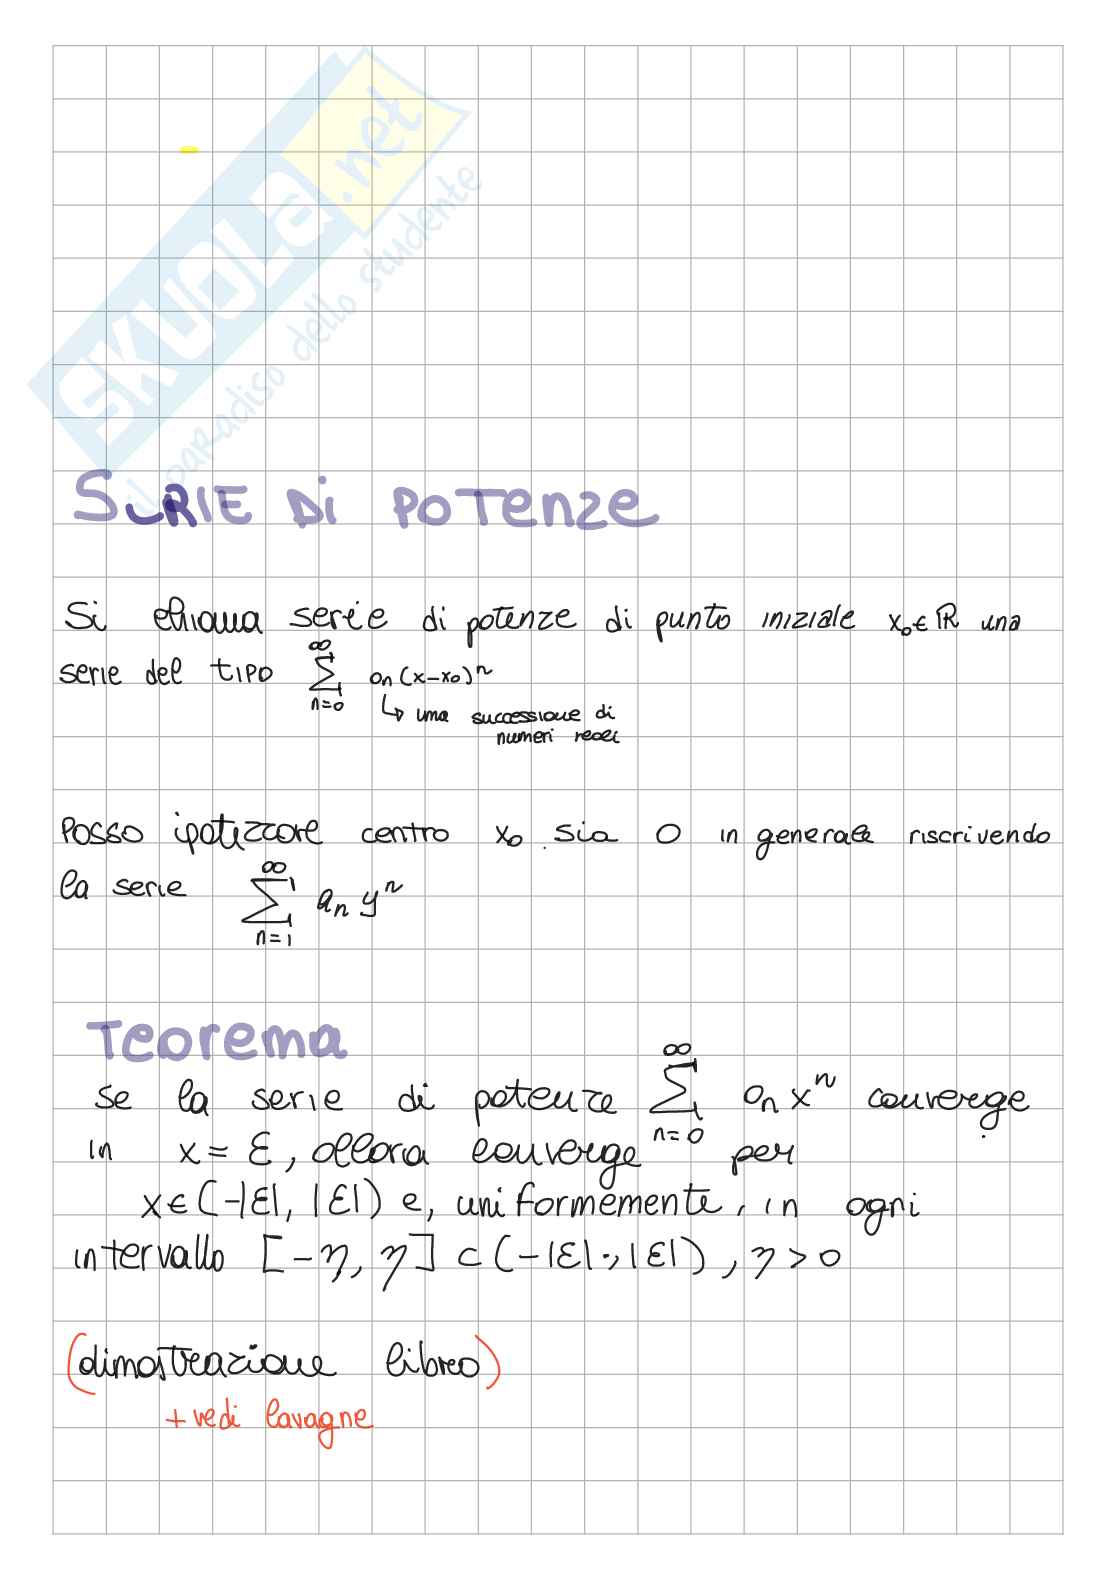 SKUOLA.net
il paradiso dello studente
SERIE Di POTENZE
Si chiama serie di potenze di punto iniziale x₀ ∈ ℝ una
serie del tipo ∞∑n=0 aₙ(x-x₀)ⁿ
↳ una successione di
numeri reali
Posso ipotizzare centro x₀ sia 0 in generale riscrivendo
la serie ∞∑n=1 aₙ yⁿ
Teorema
se la serie di potenze ∞∑n=0 aₙ xⁿ converge
in x = Ɛ, allora converge per
x ∈ (-|Ɛ|, |Ɛ|) e, uniformemente, in ogni
intervallo [-η, η] ⊂ (-|Ɛ|;|Ɛ|), η > 0
(dimostrazione libro)
+ vedi lavagne